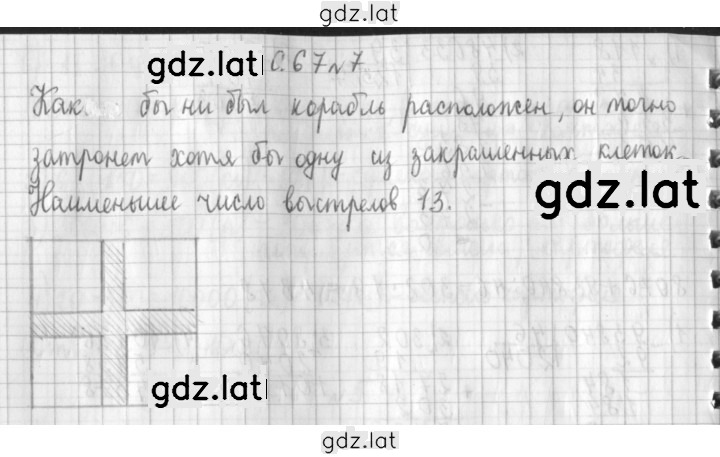 gdz.lat
gdz.lat С.67 №7
Как бы ни был корабль расположен, он точно
затронет хотя бы одну из закрашенных клеток.
Наименьшее число выстрелов 13.
gdz.lat
gdz.lat
gdz.lat